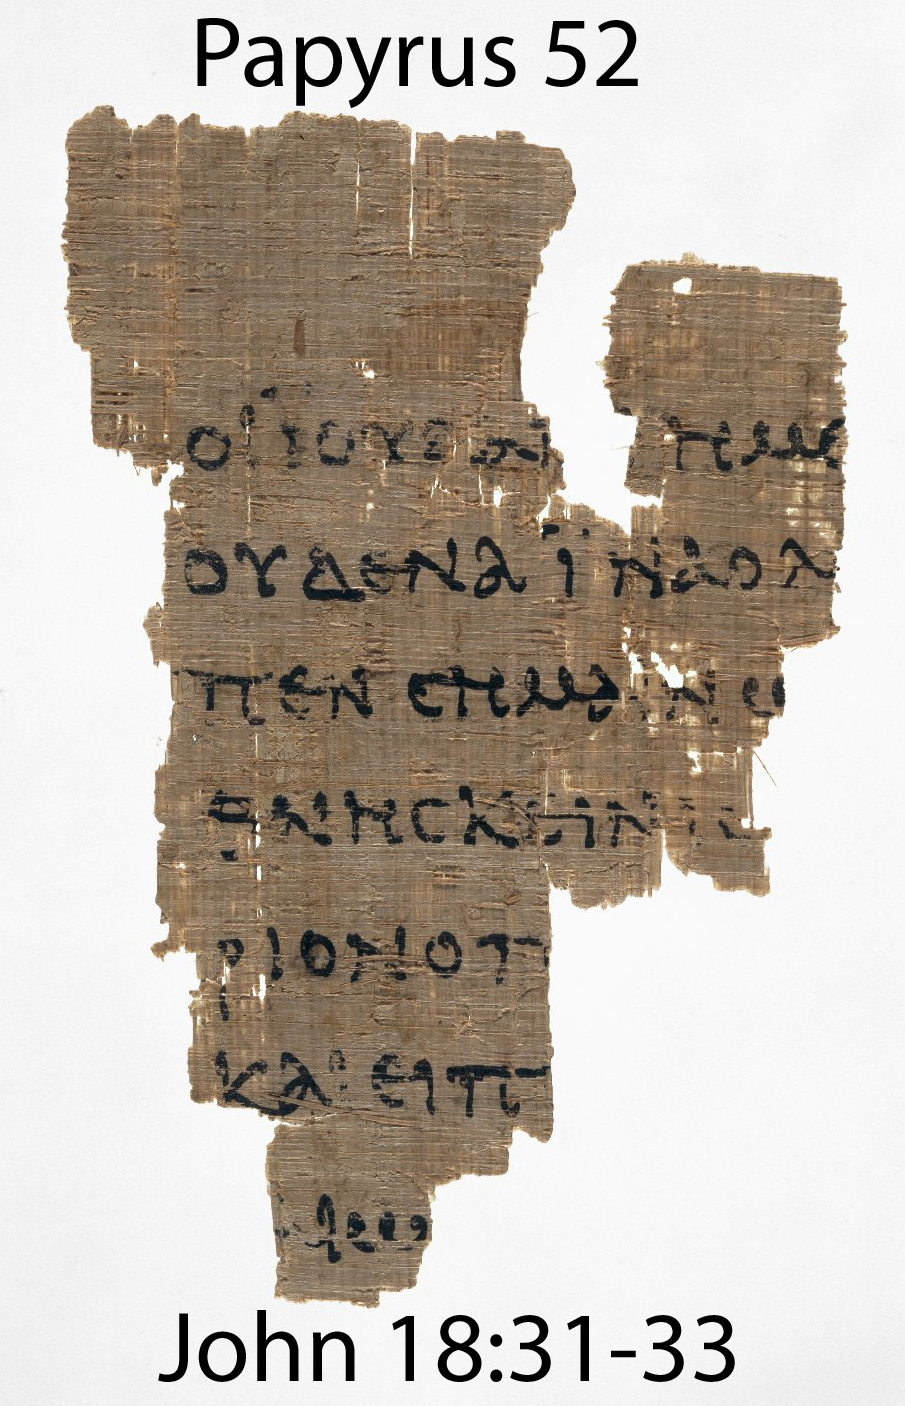 Papyrus 52
ΟΙ ΙΟΥΔΑΙ ΗΜΕ
ΟΥΔΕΝΑ ΙΝΑ Ο Λ
ΠΕΝ ΣΗΜΑΙΝΩ
ΘΝΗΣΚΕΙΝ ΙΣ
ΡΙΟΝ Ο Π
ΚΑΙ ΕΙΠ
ΙΩ
John 18:31-33